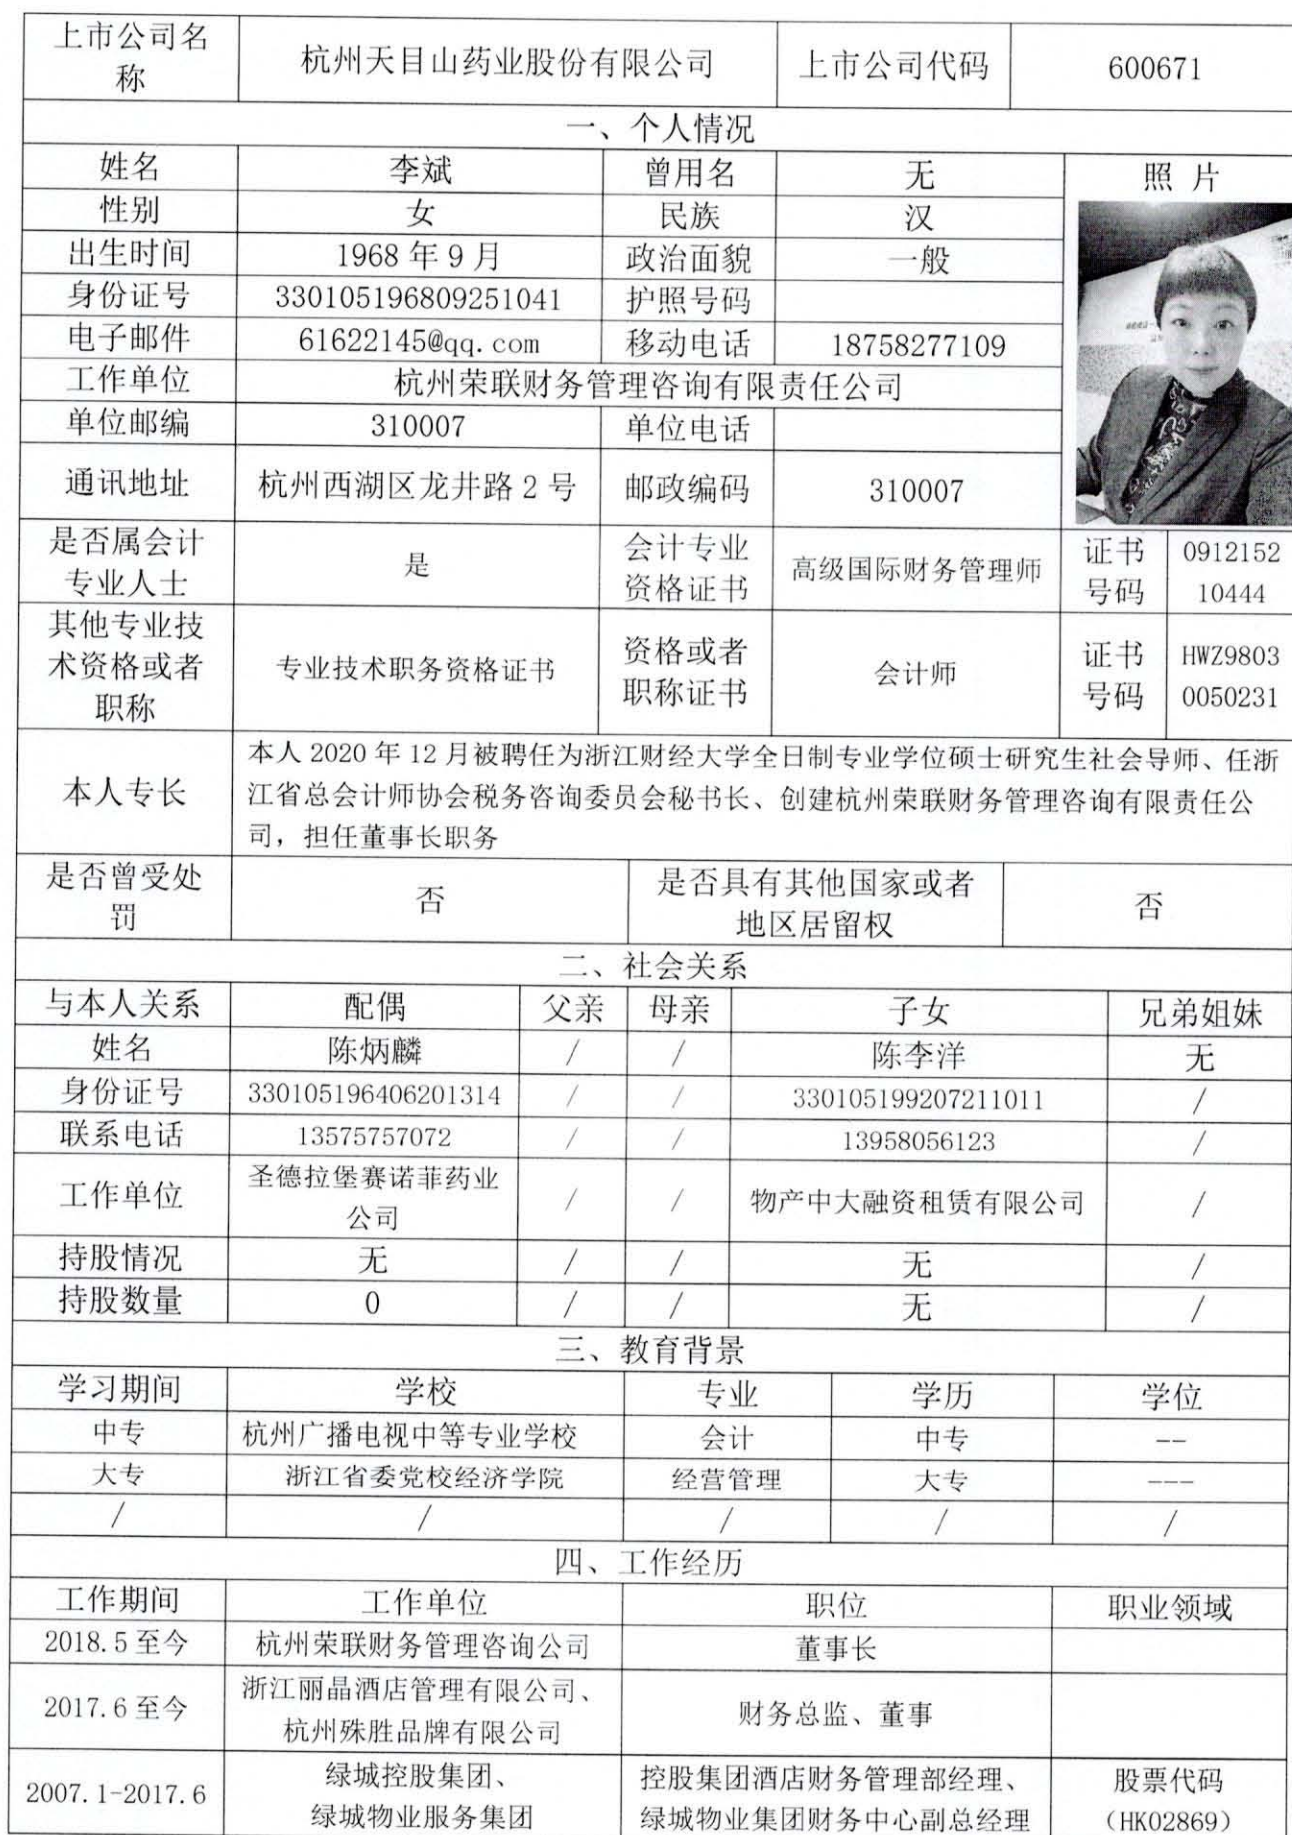 上市公司名称 杭州天目山药业股份有限公司 上市公司代码 600671
一、个人情况
姓名 李斌 曾用名 无 照 片
性别 女 民族 汉
出生时间 1968 年 9 月 政治面貌 一般
身份证号 330105196809251041 护照号码
电子邮件 61622145@qq.com 移动电话 18758277109
工作单位 杭州荣联财务管理咨询有限责任公司
单位邮编 310007 单位电话
通讯地址 杭州西湖区龙井路 2 号 邮政编码 310007
是否属会计专业人士 是 会计专业资格证书 高级国际财务管理师 证书号码 091215210444
其他专业技术资格或者职称 专业技术职务资格证书 资格或者职称证书 会计师 证书号码 HWZ98030050231
本人专长
本人 2020 年 12 月被聘任为浙江财经大学全日制专业学位硕士研究生社会导师、任浙
江省总会计师协会税务咨询委员会秘书长、创建杭州荣联财务管理咨询有限责任公
司，担任董事长职务
是否曾受处罚 否 是否具有其他国家或者地区居留权 否
二、社会关系
与本人关系 配偶 父亲 母亲 子女 兄弟姐妹
姓名 陈炳麟 / / 陈李洋 无
身份证号 330105196406201314 / / 330105199207211011 /
联系电话 13575757072 / / 13958056123 /
工作单位 圣德拉堡赛诺菲药业公司 / / 物产中大融资租赁有限公司 /
持股情况 无 / / 无 /
持股数量 0 / / 无 /
三、教育背景
学习期间 学校 专业 学历 学位
中专 杭州广播电视中等专业学校 会计 中专 --
大专 浙江省委党校经济学院 经营管理 大专 ---
/ / / / /
四、工作经历
工作期间 工作单位 职位 职业领域
2018.5 至今 杭州荣联财务管理咨询公司 董事长
2017.6 至今 浙江丽晶酒店管理有限公司、杭州殊胜品牌有限公司 财务总监、董事
2007.1-2017.6 绿城控股集团、绿城物业服务集团 控股集团酒店财务管理部经理、绿城物业集团财务中心副总经理 股票代码（HK02869）